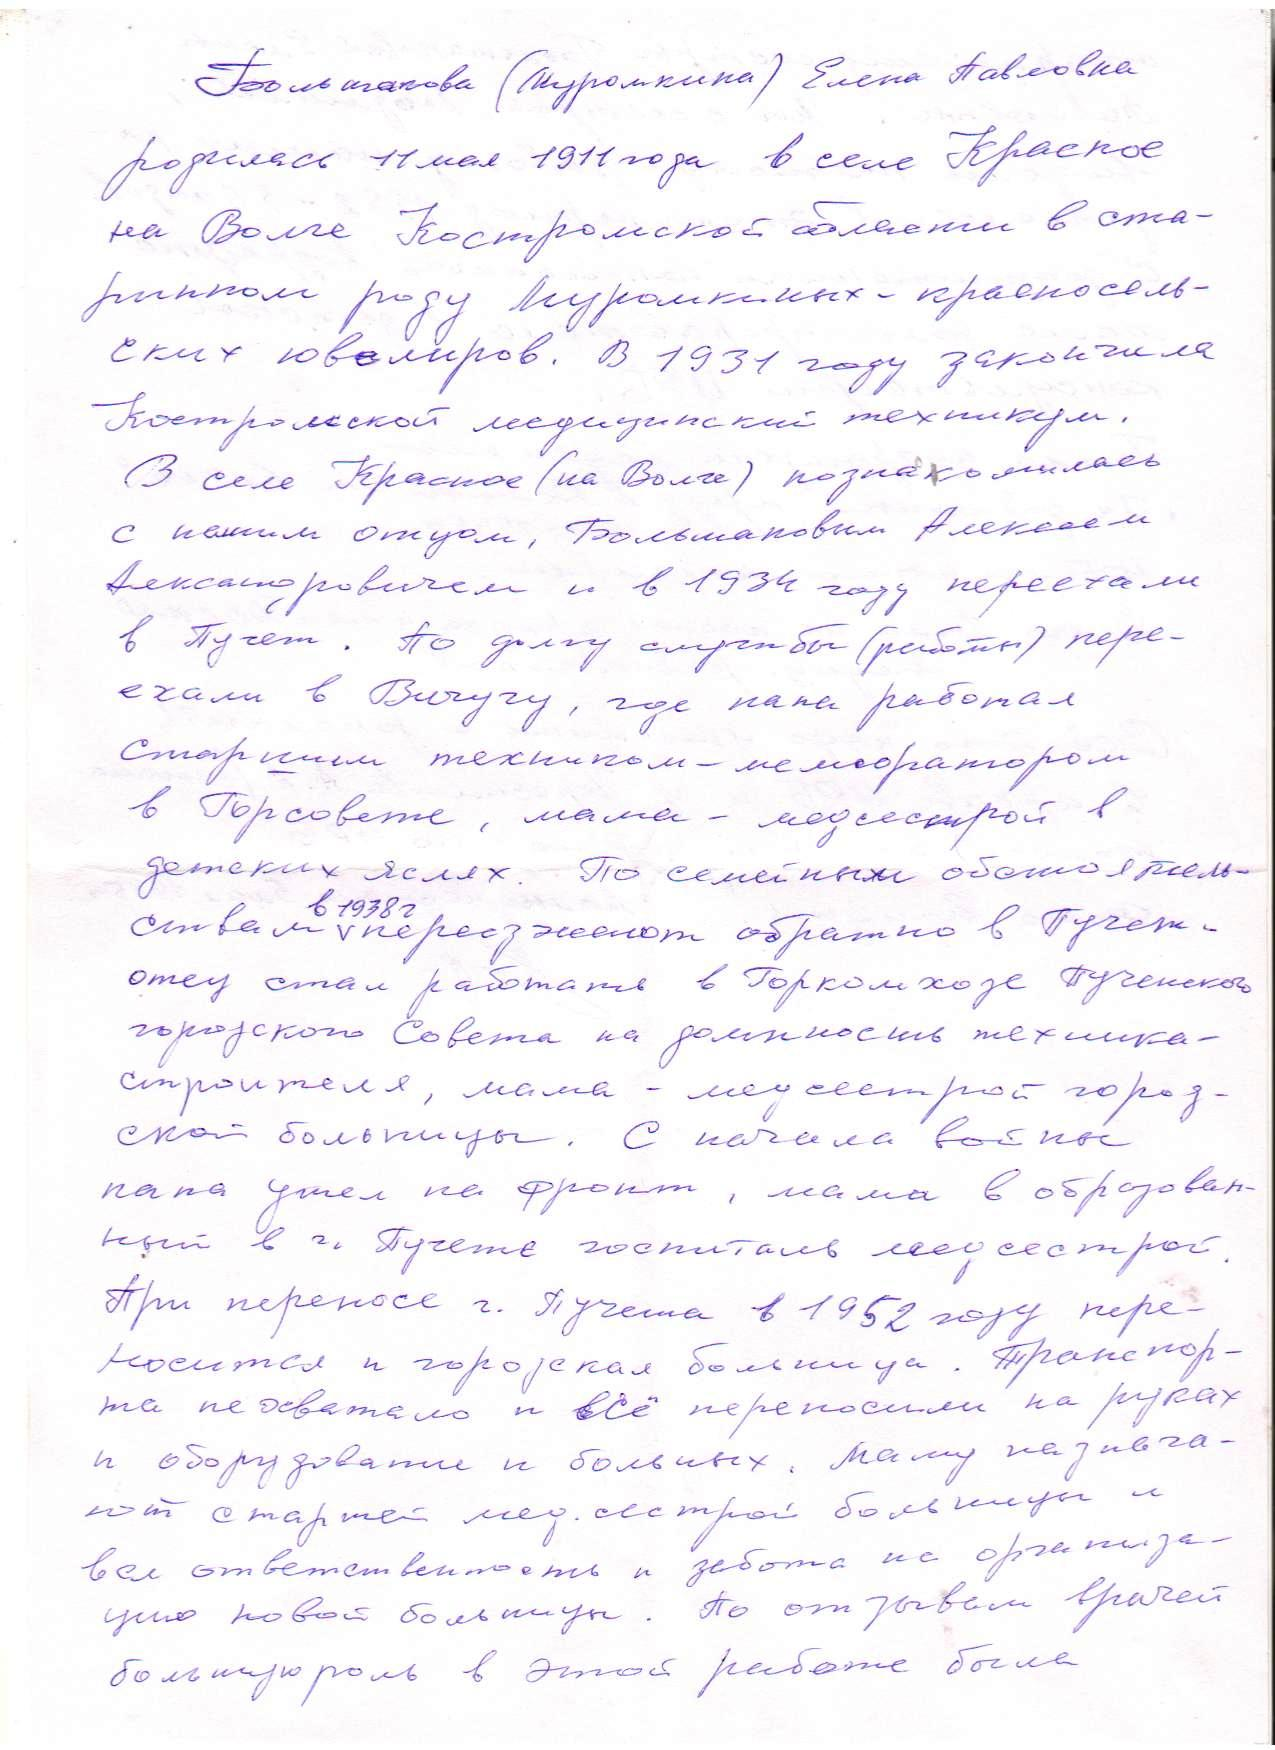 Большакова (Муромкина) Елена Павловна
родилась 11 мая 1911 года в селе Красное
на Волге Костромской области в ста-
ринном роду Муромкиных - красносель-
ских ювелиров. В 1931 году закончила
Костромской медицинский техникум.
В селе Красное (на Волге) познакомилась
с нашим отцом, Большаковым Алексеем
Александровичем и в 1934 году переехали
в Пучеж. По долгу службы (работы) пере-
ехали в Вичугу, где папа работал
старшим техником-мелиоратором
в Горсовете, мама - медсестрой в
детских яслях. По семейным обстоятель-
ствам в 1938 г переезжают обратно в Пучеж -
отец стал работать в Горкомхозе Пучежского
городского Совета на должность техника-
строителя, мама - медсестрой город-
ской больницы. С начала войны
папа ушел на фронт, мама в образован-
ный в г. Пучеже госпиталь медсестрой.
При переносе г. Пучежа в 1952 году пере-
носится и городская больница. Транспор-
та не хватало и всё переносили на руках
и оборудование и больных. Маму назнача-
ют старшей мед.сестрой больницы и
вся ответственность и забота на организа-
цию новой больницы. По отзывам врачей
большую роль в этой работе была